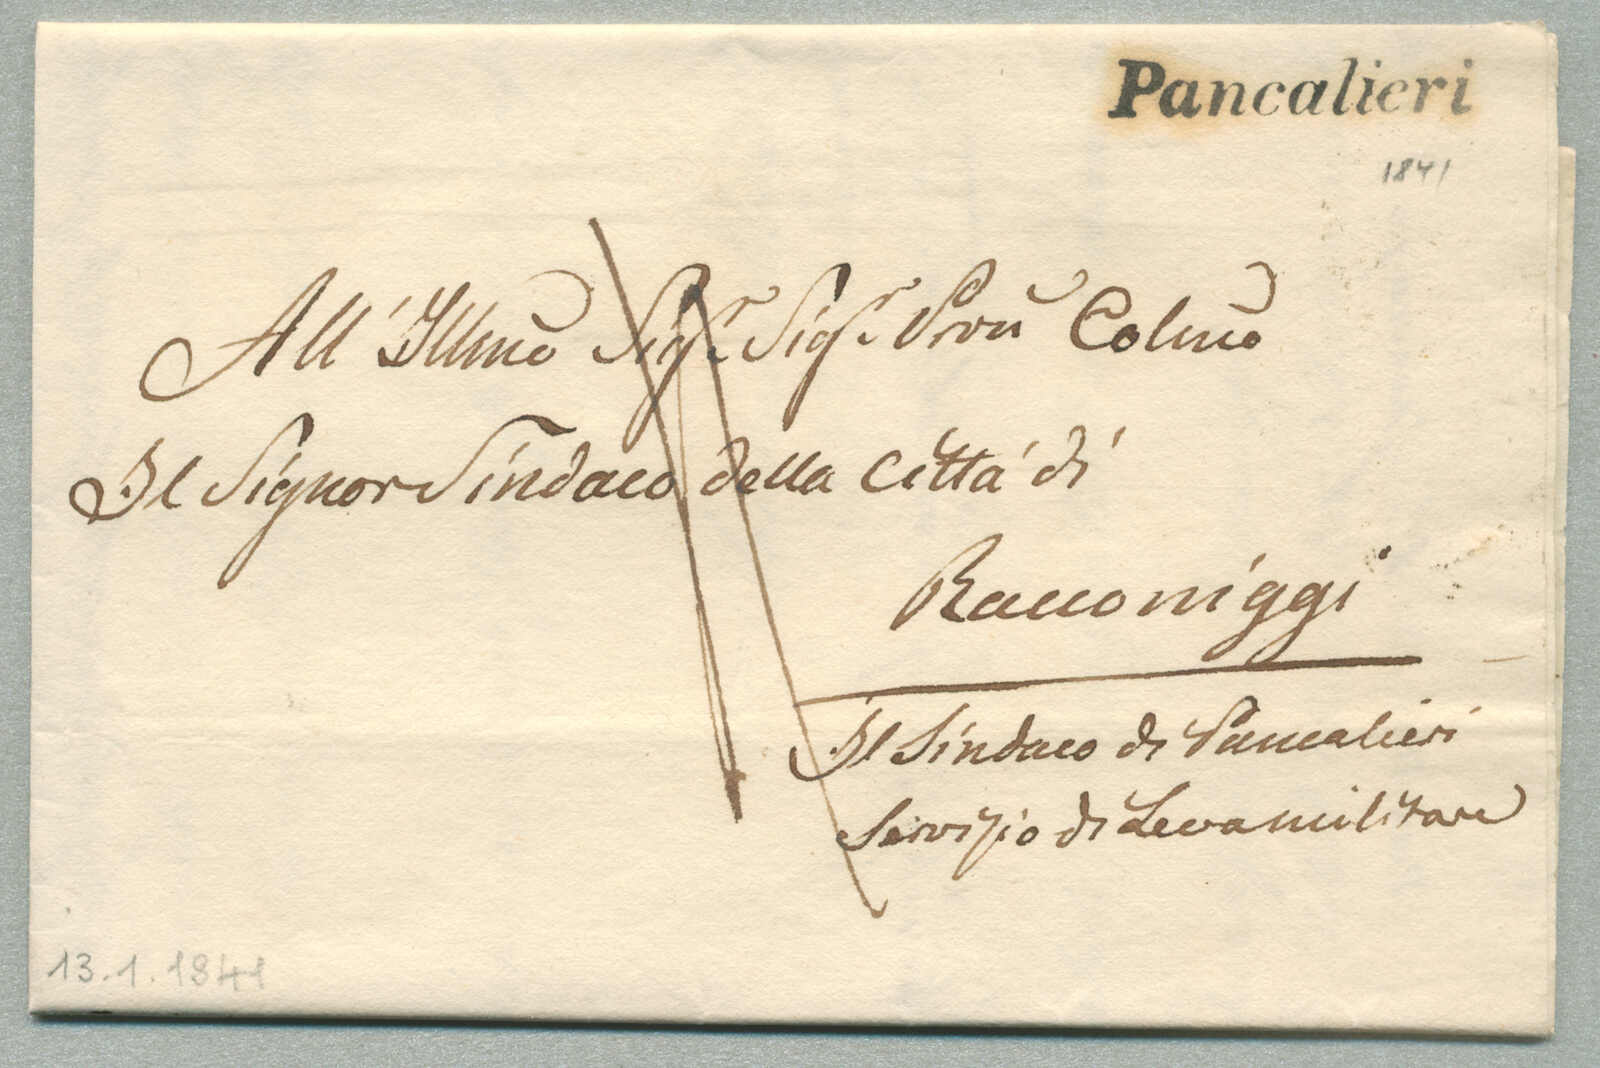 Pancalieri
1841
All'Illmo Sigr. Sigr. Pron Colmo
Il Signor Sindaco della Città di
Racconiggi
Il Sindaco di Pancalieri
Servizio di Leva militare
13.1.1841